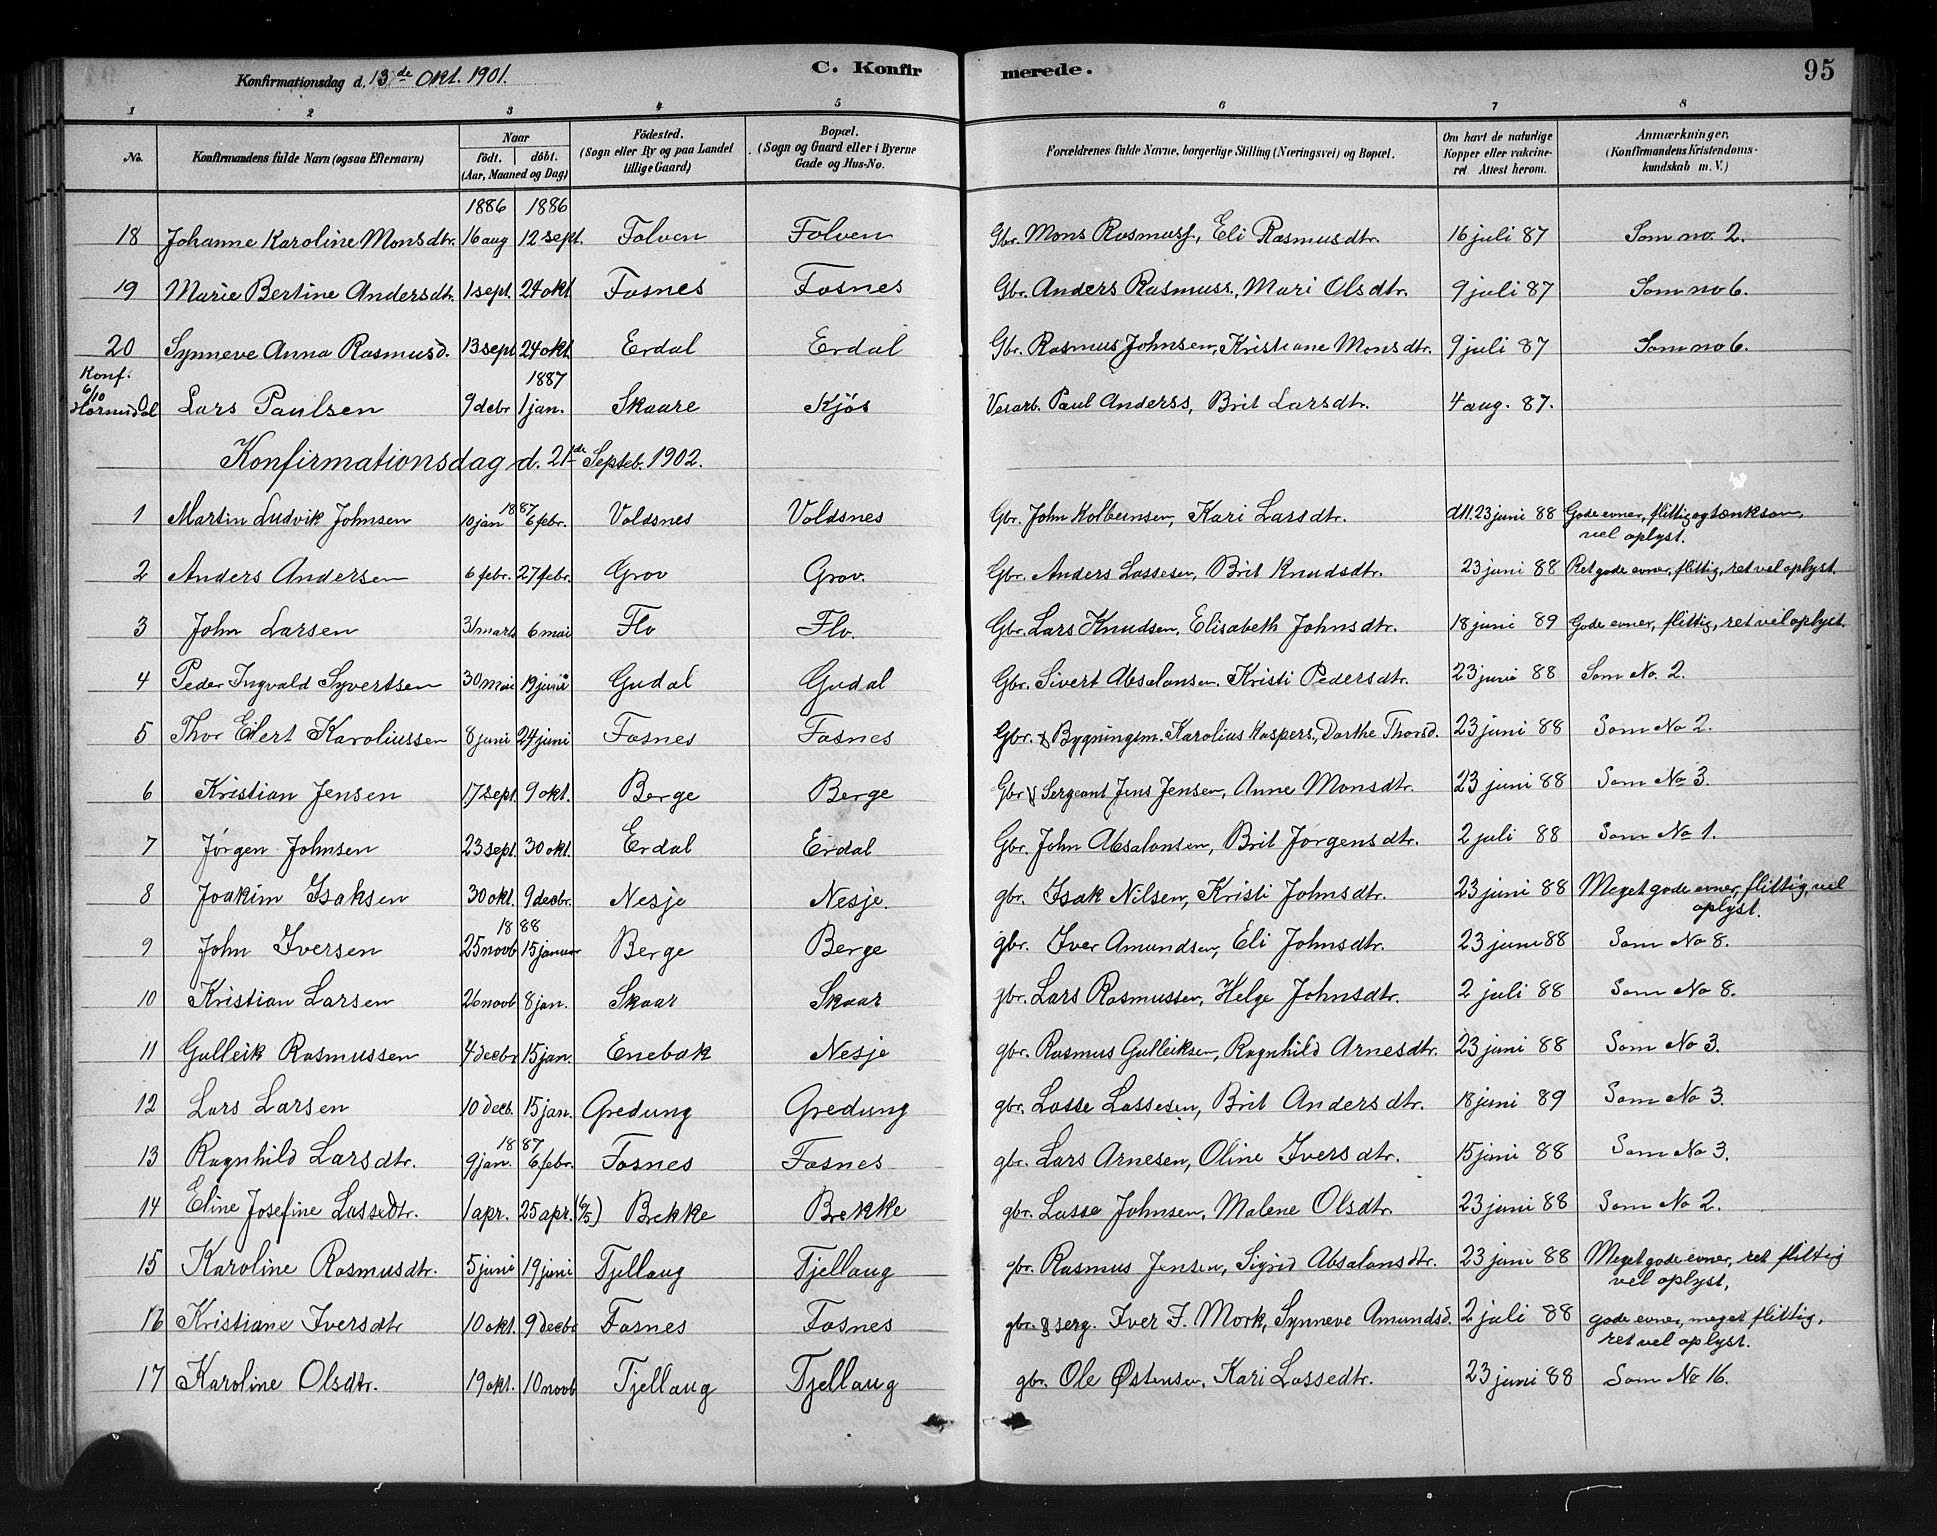 Konfirmationsdag d. 13de Okt. 1901. C. Konfirmerede. 95
1 2 3 4 5 6 7 8
No. Konfirmandens fulde Navn (ogsaa Efternavn) Naar født. døbt. (Aar, Maaned og Dag) Födested. (Sogn eller By og paa Landet tillige Gaard) Bopæl. (Sogn og Gaard eller i Byerne Gade og Hus-No. Forældrenes fulde Navne, borgerlige Stilling (Næringsvei) og Bopæl. Om havt de naturlige Kopper eller vakcineret. Attest herom. Anmærkninger, (Konfirmandens Kristendomskundskab m. V.)
1886 1886
18 Johanne Karoline Monsdtr. 16 aug 12 sept. Folven Folven Gbr. Mons Rasmuss., Eli Rasmusdtr. 16 juli 87 Som no. 2.
19 Marie Bertine Andersdtr. 1 sept. 24 okt Fosnes Fosnes Gbr. Anders Rasmuss., Mari Olsdtr. 9 juli 87 Som no 6.
20 Synneve Anna Rasmusd. 13 sept 24 okt. Erdal Erdal Gbr. Rasmus Johnsen, Kristiane Monsdtr. 9 juli 87 Som no 6.
Konf. 6/10 Hornindal 1887
Lars Paulsen 9 debr 1 jan. Skaare Kjøs Verarb. Paul Anderss, Brit Larsdtr. 4 aug. 87.
Konfirmationsdag d. 21de Septeb. 1902.
1887
1 Martin Ludvik Johnsen 10 jan 6 febr. Voldsnes Voldsnes Gbr. John Kolbeinsen, Kari Lassdtr. dtt. 23 juni 88 Gode evner, flittig og tænksom, vel oplyst.
2 Anders Andersen 6 febr. 27 febr. Grov Grov. Gbr. Anders Lassesen, Brit Knudsdtr. 23 juni 88 Ret gode evner, flittig, ret vel oplyst.
3 John Larsen 31 marts 6 mai Flo Flo. Gbr. Lars Knudsen, Elisabeth Johnsdtr. 18 juni 89 Gode evner, flittig, ret vel oplyst.
4 Peder Ingvald Syvertsen 30 mai 19 juni Gudal Gudal Gbr. Sivert Absalonsen. Kristi Pedersdtr. 23 juni 88 Som No. 2.
5 Thor Eilert Karoliussen 8 juni 24 juni Fosnes Fosnes Gbr. & Bygningsm. Karolius Kaspers., Dorthe Thorsd. 23 juni 88 Som No 2.
6 Kristian Jensen 17 sept. 9 okt. Berge Berge Gbr & Sergeant Jens Jensen, Anne Monsdtr. 23 juni 88 Som No 3.
7 Jørgen Johnsen 23 sept. 30 okt. Erdal Erdal Gbr. John Absalonsen, Brit Jørgensdtr. 2 juli 88 Som No 1.
8 Joakim Isaksen 30 okt. 9 decbr. Nesje Nesje. gbr. Isak Nilsen, Kristi Johnsdtr. 23 juni 88 Meget gode evner, flittig, vel oplyst.
1888
9 John Iversen 25 novb 15 januar Berge Berge gbr. Iver Amundsen, Eli Johnsdtr. 23 juni 88 Som No 8.
10 Kristian Larsen 26 novb 8 jan. Skaar Skaar gbr. Lars Rasmussen, Helge Johnsdtr. 2 juli 88 Som No 8.
11 Gulleik Rasmussen 4 decbr 15 jan. Enebak Nesje gbr. Rasmus Gulleiksen, Ragnhild Arnesdtr. 23 juni 88 Som No 3.
12 Lars Larsen 10 decb. 15 jan. Gredung Gredung gbr. Lasse Lassesen, Brit Andersdtr. 18 juni 89 Som No 3.
1887
13 Ragnhild Larsdtr. 9 jan. 6 febr. Fosnes Fosnes gbr. Lars Arnesen, Oline Iversdtr. 15 juni 88 Som No 3.
14 Eline Josefine Lassedtr. 1 apr. 25 apr. (6/5) Brekke Brekke gbr. Lasse Johnsen, Malene Olsdtr. 23 juni 88 Som No 2.
15 Karoline Rasmusdtr. 5 juni 19 juni Tjellaug Tjellaug gbr. Rasmus Jensen, Sigrid Absalonsdtr. 23 juni 88 Meget gode evner, ret flittig vel oplyst,
16 Kristiane Iversdtr 10 okt. 9 decbr Fosnes Fosnes gbr. & serg. Iver J. Mork, Synneve Amundsd. 2 juli 88 gode evner, meget flittig, ret vel oplyst.
17 Karoline Olsdtr. 19 okt. 10 novb Tjellaug Tjellaug gbr. Ole Østensen, Kari Lassedtr. 23 juni 88 Som No 16.